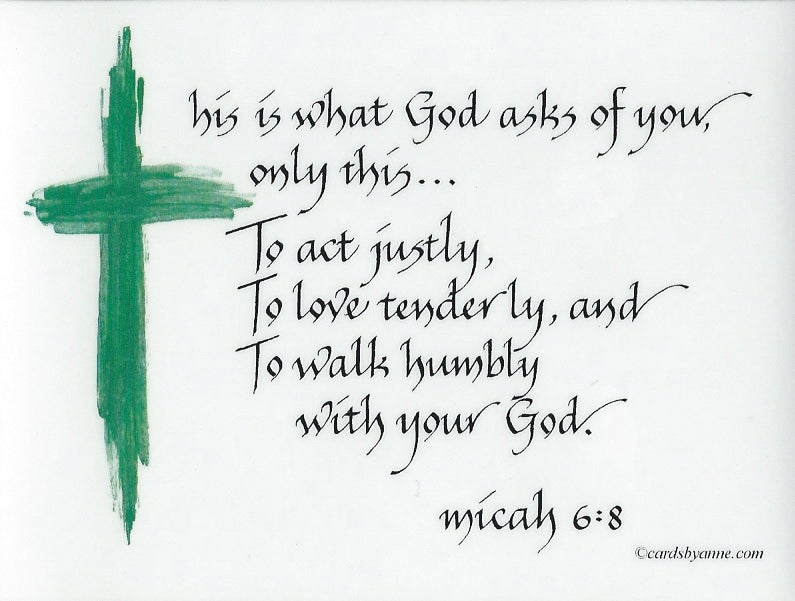 his is what God asks of you,
only this...
To act justly,
To love tenderly, and
To walk humbly
with your God.
micah 6:8
©cardsbyanne.com